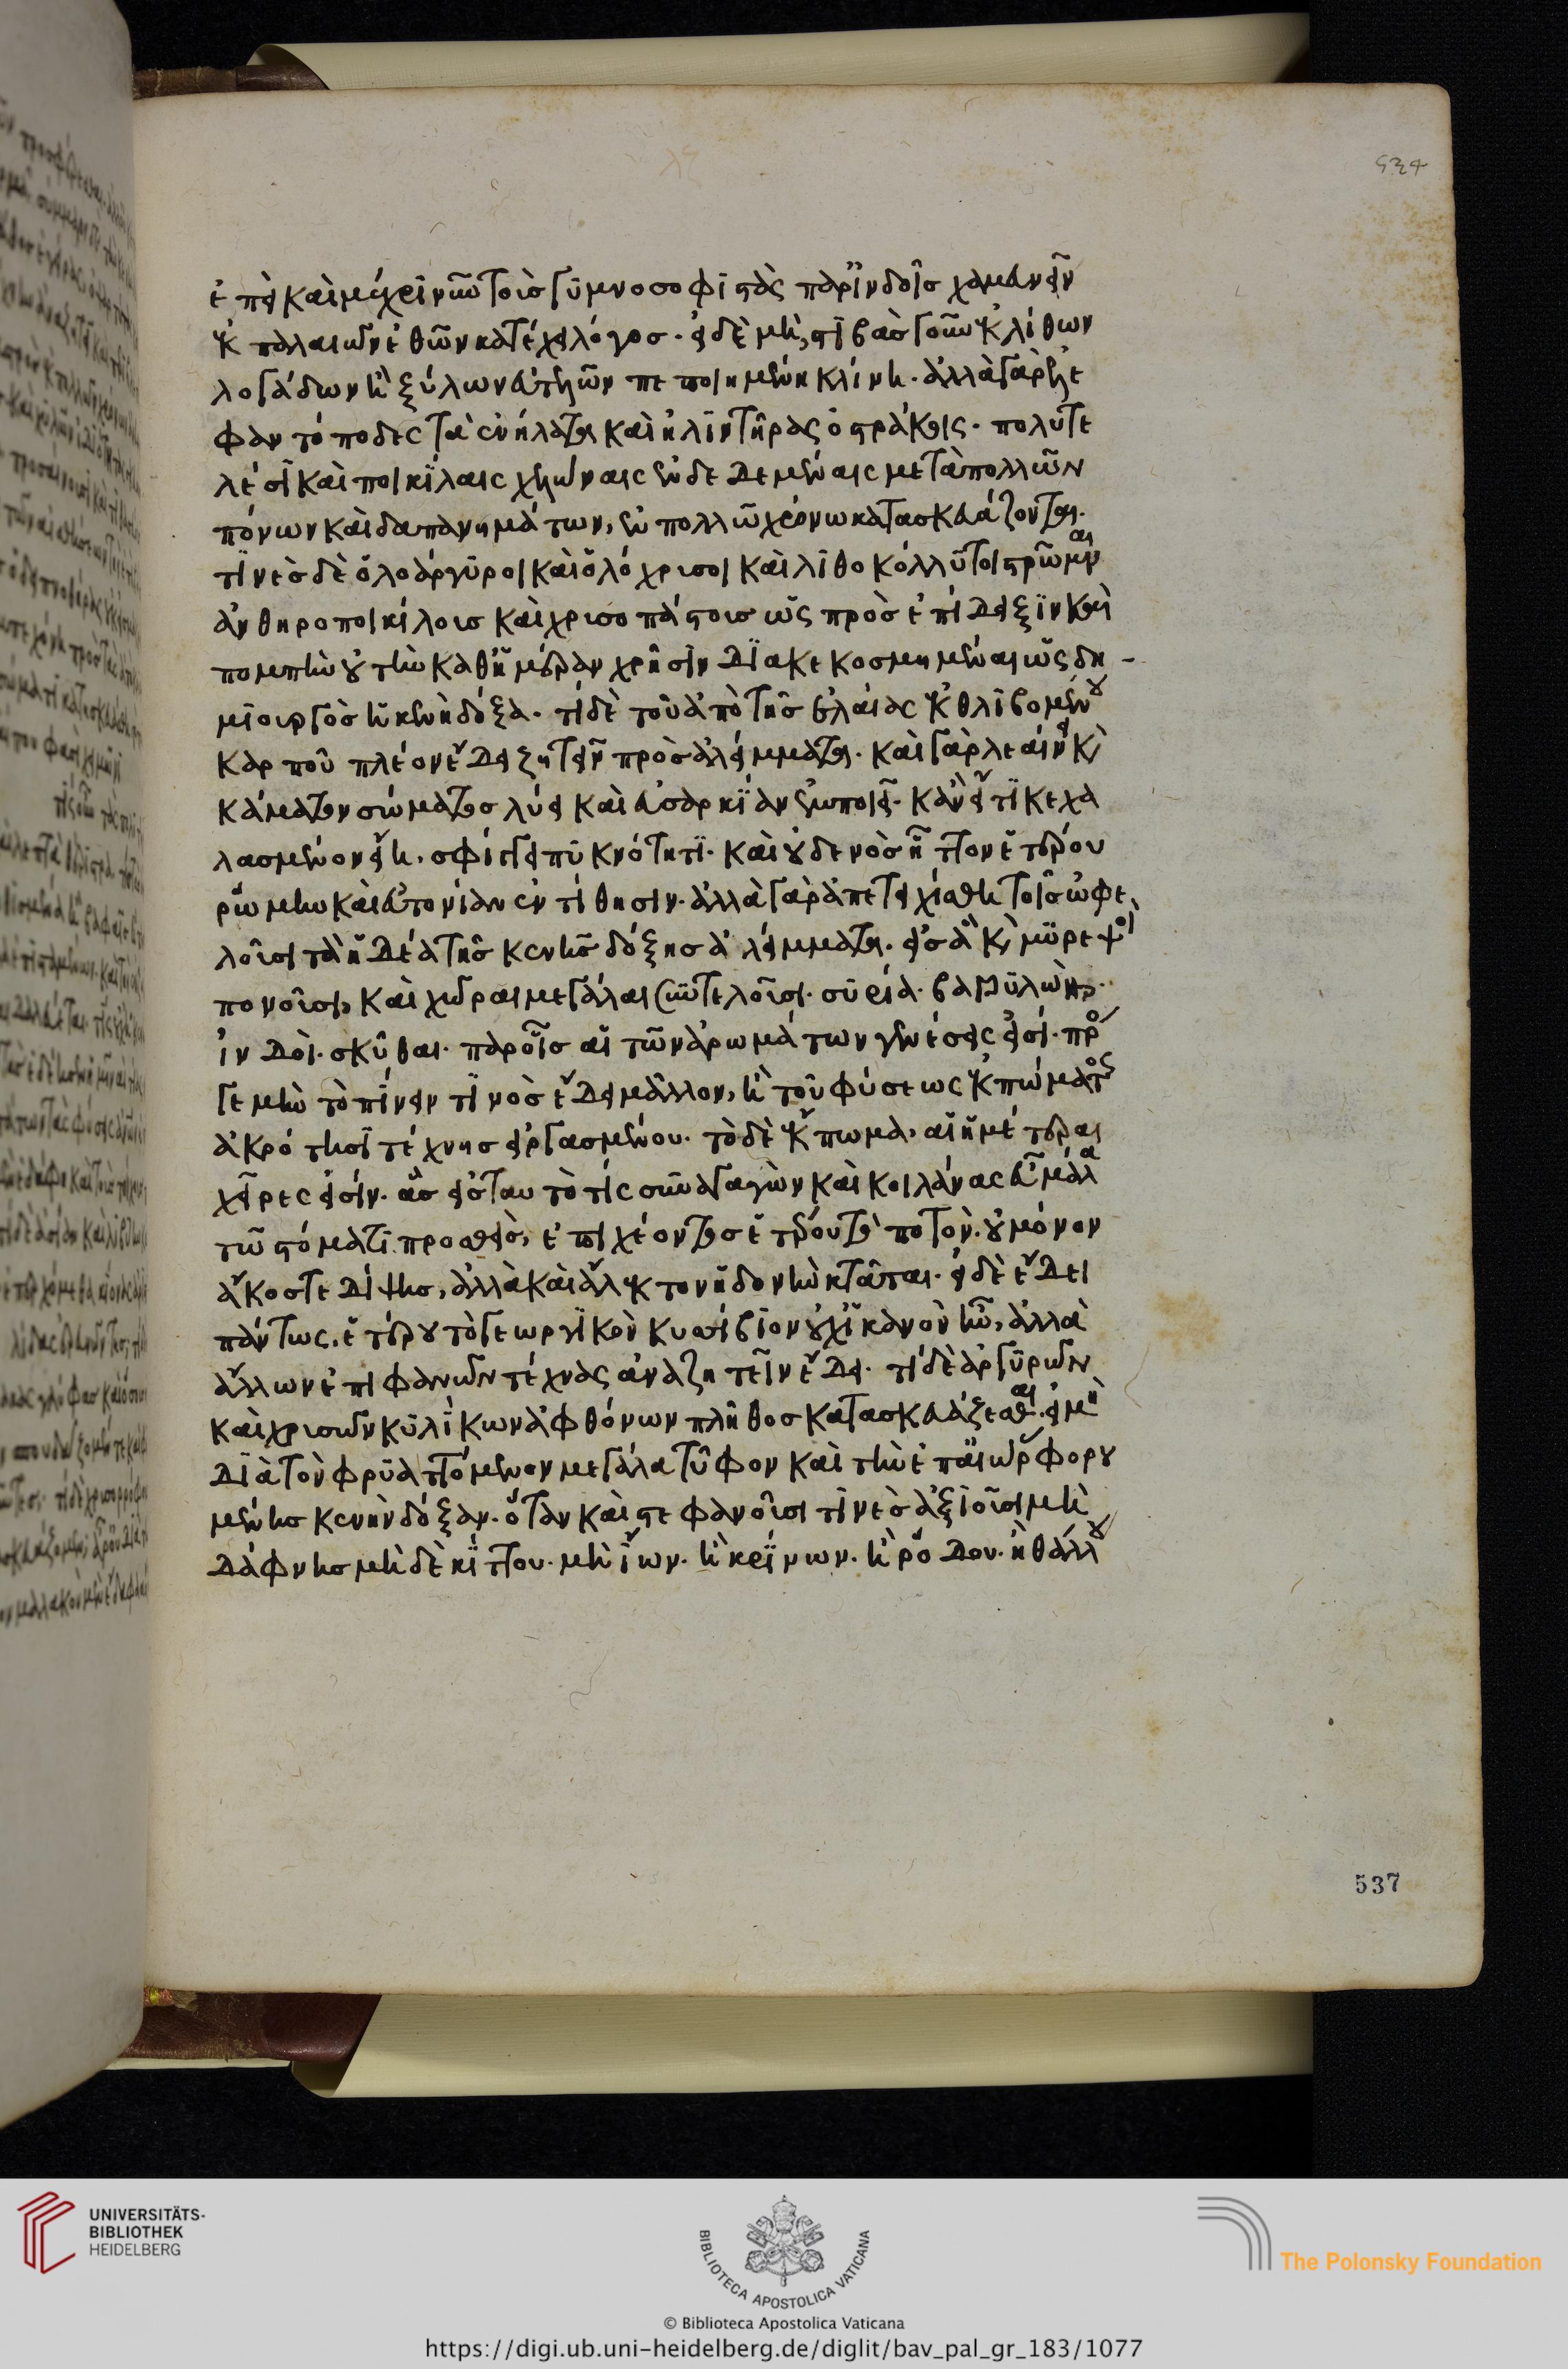 ἐπεὶ καὶ μέχρι νῦν τοὺς γυμνοσοφιστὰς παρ' ἰνδοῖς χαμευνεῖν
ἐκ παλαιῶν ἐθῶν κατέχει λόγος. εἰ δὲ μὴ, στιβὰς γοῦν ἐκ λίθων
λογάδων ἢ ξύλων εὐτελῶν πεποιημένη κλίνη. ἀλλὰ γὰρ ἐλε
φαντόποδες τὰ ἐνήλατα καὶ κλιντῆρας ὀστράκοις. πολυτε
λέσι καὶ ποικίλαις χελώναις ἐνδεδεμέναις μετὰ πολλῶν
πόνων καὶ δαπανημάτων, ἐν πολλῶ χρόνω κατασκευάζονται.
τινὲς δὲ ὁλοάργυροι καὶ ὁλόχρισοι καὶ λιθοκόλλυτοι στρῶμναι
ἀνθηροποικίλοις καὶ χρισοπάστοις ὡς πρὸς ἐπίδειξιν καὶ
πομπὴν οὐ τὴν καθημέραν χρῆσιν διακεκοσμημέναι ὡς δη -
μιουργὸς ἡ κενὴ δόξα. τί δὲ τοῦ ἀπὸ τῆς ἐλαίας ἐκθλιβομένου
καρποῦ πλέον ἔδει ζητεῖν πρὸς ἀλείμματα. καὶ γὰρ λεαίνει καὶ
κάματον σώματος λύει καὶ εὐσαρκίαν ἐμποιεῖ. κἂν εἴ τι κεχα
λασμένον εἴη, σφίγγει πυκνότητι. καὶ οὐδενὸς ἧττον ἑτέρου
ῥώμην καὶ εὐτονίαν ἐντίθησιν. ἀλλὰ γὰρ ἀπετειχίσθη τοῖς ὠφε
λοῦσι τὰ ἡδέα τῆς κενῆς δόξης ἀλείμματα. εἰς ἃ καὶ μυρεψοὶ
πονοῦσι, καὶ χῶραι μεγάλαι συντελοῦσι. συρία. βαβυλὼν.
ἰνδοί. σκύθαι. παροῖς αἱ τῶν ἀρωμάτων γενέσεις εἰσί. πρός
γε μὴν τὸ πίνειν τινὸς ἔδει μᾶλλον, ἢ τοῦ φύσεως ἐκπώματος
ἀκρότησι τέχνης εἰργασμένου. τὸ δὲ ἔκπωμα, αἱ ἡμέτεραι
χεῖρες εἰσίν. ἃς εἰς ταυτό τίς συναγαγὼν καὶ κοιλάνας εὖ μάλα
τῶ στόματι προσθεὶς, ἐπιχέοντος ἑτέρου τὸ ποτὸν. οὐ μόνον
ἄκος τε δίψης, ἀλλὰ καὶ ἄλεκτον ἡδονὴν κτᾶται. εἰ δὲ ἔδει
πάντως, ἑτέρου τὸ γεωργικὸν κυσσίβιον οὐχ ἱκανὸν ἦν, ἀλλὰ
ἄλλων ἐπιφανῶν τέχνας ἀναζητεῖν ἔδει. τί δὲ ἀργυρῶν
καὶ χρισῶν κυλίκων ἀφθόνων πλῆθος κατασκευάζεσθαι. εἰ μὴ
διὰ τὸν φρυαττόμενον μεγάλα τῦφον καὶ τὴν ἐπαιώρ φορου
μένης κενὴν δόξαν. ὅταν καὶ στεφανοῦσι τινὲς ἀξιοῦσι μὴ
δάφνης μὴ δὲ κίττου. μὴ ἴων. ἢ κρίνων. ἢ ῥόδου. ἢ θάλλου
537
UNIVERSITÄTS-
BIBLIOTHEK
HEIDELBERG
BIBLIOTECA APOSTOLICA VATICANA
The Polonsky Foundation
© Biblioteca Apostolica Vaticana
https://digi.ub.uni-heidelberg.de/diglit/bav_pal_gr_183/1077